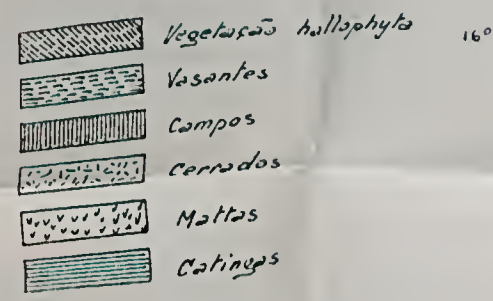 Vegetação hallophyta 16°
Vasantes
Campos
Cerrados
Mattas
Catingas